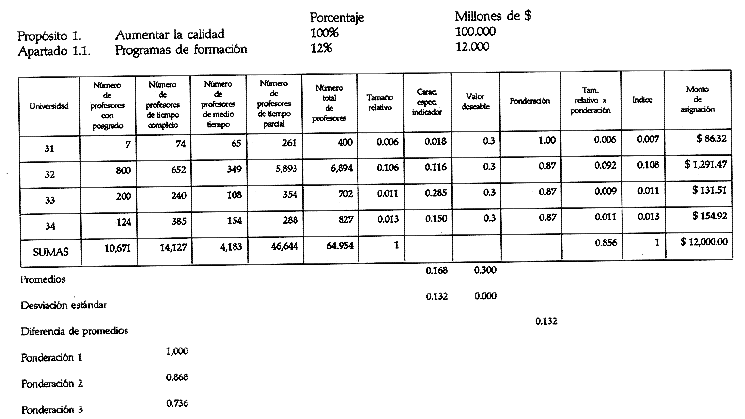 Porcentaje Millones de $
Propósito 1. Aumentar la calidad 100% 100.000
Apartado 1.1. Programas de formación 12% 12.000
Universidad Número de profesores con posgrado Número de profesores de tiempo completo Número de profesores de medio tiempo Número de profesores de tiempo parcial Número total de profesores Tamaño relativo Carac. espec. indicador Valor deseable Ponderación Tam. relativo x ponderación Indice Monto de asignación
31 7 74 65 261 400 0.006 0.018 0.3 1.00 0.006 0.007 $ 86.32
32 800 652 349 5,893 6,894 0.106 0.116 0.3 0.87 0.092 0.108 $ 1,291.47
33 200 240 108 354 702 0.011 0.285 0.3 0.87 0.009 0.011 $ 131.51
34 124 385 154 288 827 0.013 0.150 0.3 0.87 0.011 0.013 $ 154.92
SUMAS 10,671 14,127 4,183 46,644 64.954 1 0.856 1 $ 12,000.00
Promedios 0.168 0.300
Desviación estándar 0.132 0.000
Diferencia de promedios 0.132
Ponderación 1 1,000
Ponderación 2 0.868
Ponderación 3 0.736